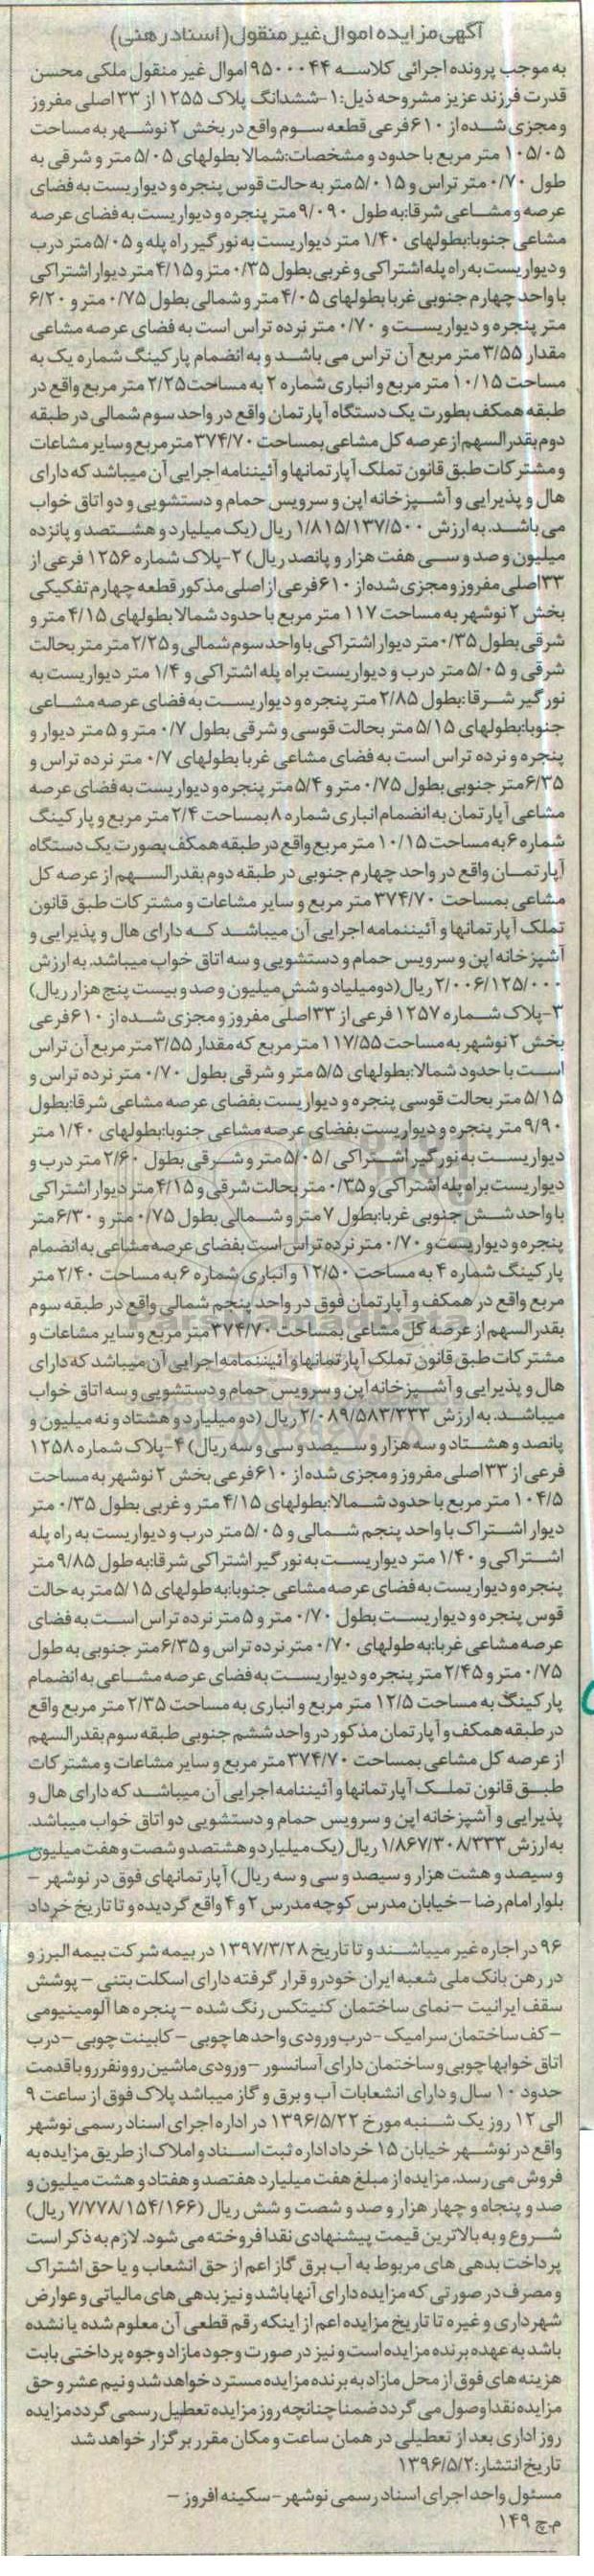 آگهی مزایده اموال غیر منقول (اسناد رهنی)
به موجب پرونده اجرائی کلاسه ۹۵۰۰۰۴۴ اموال غیر منقول ملکی محسن
قدرت فرزند عزیز مشروحه ذیل: ۱-ششدانگ پلاک ۱۲۵۵ از ۳۳ اصلی مفروز
و مجزی شده از ۶۱۰ فرعی قطعه سوم واقع در بخش ۲ نوشهر به مساحت
۱۰۵/۰۵ متر مربع با حدود و مشخصات: شمالا بطولهای ۵/۰۵ متر و شرقی به
طول ۰/۷۰ متر تراس و ۵/۰۱۵ متر به حالت قوس پنجره و دیواریست به فضای
عرصه و مشاعی شرقا: به طول ۹/۰۹۰ متر پنجره و دیواریست به فضای عرصه
مشاعی جنوبا: بطولهای ۱/۴۰ متر دیواریست به نورگیر راه پله و ۵/۰۵ متر درب
و دیواریست به راه پله اشتراکی و غربی بطول ۰/۳۵ متر و ۴/۱۵ متر دیوار اشتراکی
با واحد چهارم جنوبی غربا بطولهای ۴/۰۵ متر و شمالی بطول ۰/۷۵ متر و ۶/۲۰
متر پنجره و دیواریست و ۰/۷۰ متر نرده تراس است به فضای عرصه مشاعی
مقدار ۳/۵۵ متر مربع آن تراس می باشد و به انضمام پارکینگ شماره یک به
مساحت ۱۰/۱۵ متر مربع و انباری شماره ۲ به مساحت ۲/۲۵ متر مربع واقع در
طبقه همکف بطورت یک دستگاه آپارتمان واقع در واحد سوم شمالی در طبقه
دوم بقدرالسهم از عرصه کل مشاعی بمساحت ۳۷۴/۷۰ متر مربع و سایر مشاعات
و مشترکات طبق قانون تملک آپارتمانها و آئیننامه اجرایی آن میباشد که دارای
هال و پذیرایی و آشپزخانه اپن و سرویس حمام و دستشویی و دو اتاق خواب
می باشد. به ارزش ۱/۸۱۵/۱۳۷/۵۰۰ ریال (یک میلیارد و هشتصد و پانزده
میلیون و صد و سی هفت هزار و پانصد ریال) ۲-پلاک شماره ۱۲۵۶ فرعی از
۳۳ اصلی مفروز و مجزی شده از ۶۱۰ فرعی از اصلی مذکور قطعه چهارم تفکیکی
بخش ۲ نوشهر به مساحت ۱۱۷ متر مربع با حدود شمالا بطولهای ۴/۱۵ متر و
شرقی بطول ۰/۳۵ متر دیوار اشتراکی با واحد سوم شمالی و ۲/۲۵ متر متر بحالت
شرقی و ۵/۰۵ متر درب و دیواریست براه پله اشتراکی و ۱/۴ متر دیواریست به
نورگیر شرقا: بطول ۲/۸۵ متر پنجره و دیواریست به فضای عرصه مشاعی
جنوبا: بطولهای ۵/۱۵ متر بحالت قوسی و شرقی بطول ۰/۷ متر و ۵ متر دیوار و
پنجره و نرده تراس است به فضای مشاعی غربا بطولهای ۰/۷ متر نرده تراس و
۶/۳۵ متر جنوبی بطول ۰/۷۵ متر و ۵/۴ متر پنجره و دیواریست به فضای عرصه
مشاعی آپارتمان به انضمام انباری شماره ۸ بمساحت ۲/۴ متر مربع و پارکینگ
شماره ۶ به مساحت ۱۰/۱۵ متر مربع واقع در طبقه همکف بصورت یک دستگاه
آپارتمان واقع در واحد چهارم جنوبی در طبقه دوم بقدرالسهم از عرصه کل
مشاعی بمساحت ۳۷۴/۷۰ متر مربع و سایر مشاعات و مشترکات طبق قانون
تملک آپارتمانها و آئیننمامه اجرایی آن میباشد که دارای هال و پذیرایی و
آشپزخانه اپن و سرویس حمام و دستشویی و سه اتاق خواب میباشد. به ارزش
۲/۰۰۶/۱۲۵/۰۰۰ ریال (دو میلیاد و شش میلیون و صد و بیست پنج هزار ریال)
۳-پلاک شماره ۱۲۵۷ فرعی از ۳۳ اصلی مفروز و مجزی شده از ۶۱۰ فرعی
بخش ۲ نوشهر به مساحت ۱۱۷/۵۵ متر مربع که مقدار ۳/۵۵ متر مربع آن تراس
است با حدود شمالا: بطولهای ۵/۵ متر و شرقی بطول ۰/۷۰ متر نرده تراس و
۵/۱۵ متر بحالت قوسی پنجره و دیواریست بفضای عرصه مشاعی شرقا: بطول
۹/۹۰ متر پنجره و دیواریست بفضای عرصه مشاعی جنوبا: بطولهای ۱/۴۰ متر
دیواریست به نورگیر اشتراکی / ۵/۰۵ متر و شرقی بطول ۲/۶۰ متر درب و
دیواریست براه پله اشتراکی و ۰/۳۵ متر بحالت شرقی و ۴/۱۵ متر دیوار اشتراکی
با واحد شش جنوبی غربا: بطول ۷ متر و شمالی بطول ۰/۷۵ متر و ۶/۳۰ متر
پنجره و دیواریست و ۰/۷۰ متر نرده تراس است بفضای عرصه مشاعی به انضمام
پارکینگ شماره ۴ به مساحت ۱۲/۵۰ و انباری شماره ۶ به مساحت ۲/۴۰ متر
مربع واقع در همکف و آپارتمان فوق در واحد پنجم شمالی واقع در طبقه سوم
بقدرالسهم از عرصه کل مشاعی بمساحت ۳۷۴/۷۰ متر مربع و سایر مشاعات و
مشترکات طبق قانون تملک آپارتمانها و آئیننمامه اجرایی آن میباشد که دارای
هال و پذیرایی و آشپزخانه اپن و سرویس حمام و دستشویی و سه اتاق خواب
میباشد. به ارزش ۲/۰۸۹/۵۸۳/۳۳۳ ریال (دو میلیارد و هشتاد و نه میلیون و
پانصد و هشتاد و سه هزار و سیصد و سی و سه ریال) ۴-پلاک شماره ۱۲۵۸
فرعی از ۳۳ اصلی مفروز و مجزی شده از ۶۱۰ فرعی بخش ۲ نوشهر به مساحت
۱۰۴/۵ متر مربع با حدود شمالا: بطولهای ۴/۱۵ متر و غربی بطول ۰/۳۵ متر
دیوار اشتراک با واحد پنجم شمالی و ۵/۰۵ متر درب و دیواریست به راه پله
اشتراکی و ۱/۴۰ متر دیواریست به نورگیر اشتراکی شرقا: به طول ۹/۸۵ متر
پنجره و دیواریست به فضای عرصه مشاعی جنوبا: به طولهای ۵/۱۵ متر به حالت
قوس پنجره و دیواریست بطول ۰/۷۰ متر و ۵ متر نرده تراس است به فضای
عرصه مشاعی غربا: به طولهای ۰/۷۰ متر نرده تراس و ۶/۳۵ متر جنوبی به طول
۰/۷۵ متر و ۲/۴۵ متر پنجره و دیواریست به فضای عرصه مشاعی به انضمام
پارکینگ به مساحت ۱۲/۵ متر مربع و انباری به مساحت ۲/۳۵ متر مربع واقع
در طبقه همکف و آپارتمان مذکور در واحد ششم جنوبی طبقه سوم بقدرالسهم
از عرصه کل مشاعی بمساحت ۳۷۴/۷۰ متر مربع و سایر مشاعات و مشترکات
طبق قانون تملک آپارتمانها و آئیننامه اجرایی آن میباشد که دارای هال و
پذیرایی و آشپزخانه اپن و سرویس حمام و دستشویی دو اتاق خواب میباشد.
به ارزش ۱/۸۶۷/۳۰۸/۳۳۳ ریال (یک میلیارد و هشتصد و شصت و هفت میلیون
و سیصد و هشت هزار و سیصد و سی و سه ریال) آپارتمانهای فوق در نوشهر -
بلوار امام رضا - خیابان مدرس کوچه مدرس ۲ و ۴ واقع گردیده و تا تاریخ خرداد
۹۶ در اجاره غیر میباشند و تا تاریخ ۱۳۹۷/۳/۲۸ در بیمه شرکت بیمه البرز و
در رهن بانک ملی شعبه ایران خودرو قرار گرفته دارای اسکلت بتنی - پوشش
سقف ایرانیت - نمای ساختمان کنیتکس رنگ شده - پنجره ها آلومینیومی
- کف ساختمان سرامیک - درب ورودی واحدها چوبی - کابینت چوبی - درب
اتاق خوابها چوبی و ساختمان دارای آسانسور - ورودی ماشین رو و نفررو با قدمت
حدود ۱۰ سال و دارای انشعابات آب و برق و گاز میباشد پلاک فوق از ساعت ۹
الی ۱۲ روز یک شنبه مورخ ۱۳۹۶/۵/۲۲ در اداره اجرای اسناد رسمی نوشهر
واقع در نوشهر خیابان ۱۵ خرداد اداره ثبت اسناد و املاک از طریق مزایده به
فروش می رسد. مزایده از مبلغ هفت میلیارد هفتصد و هفتاد و هشت میلیون و
صد و پنجاه و چهار هزار و صد و شصت و شش ریال (۷/۷۷۸/۱۵۴/۱۶۶ ریال)
شروع و به بالاترین قیمت پیشنهادی نقدا فروخته می شود. لازم به ذکر است
پرداخت بدهی های مربوط به آب برق گاز اعم از حق انشعاب و یا حق اشتراک
و مصرف در صورتی که مزایده دارای آنها باشد و نیز بدهی های مالیاتی و عوارض
شهرداری و غیره تا تاریخ مزایده اعم از اینکه رقم قطعی آن معلوم شده یا نشده
باشد به عهده برنده مزایده است و نیز در صورت وجود مازاد وجوه پرداختی بابت
هزینه های فوق از محل مازاد به برنده مزایده مسترد خواهد شد و نیم عشر و حق
مزایده نقدا وصول می گردد ضمنا چنانچه روز مزایده تعطیل رسمی گردد مزایده
روز اداری بعد از تعطیلی در همان ساعت و مکان مقرر برگزار خواهد شد
تاریخ انتشار: ۱۳۹۶/۵/۲
مسئول واحد اجرای اسناد رسمی نوشهر - سکینه افروز -
م.چ ۱۴۹